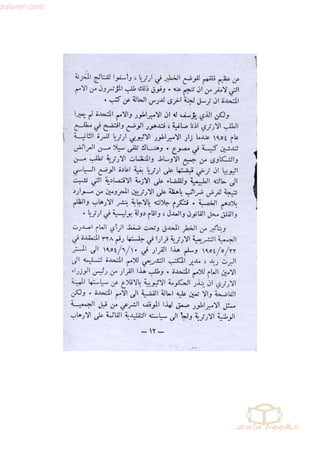 zula-eri.com
عن عظيم قلقهم للوضع الخطير في ارتريا ، وأسفوا للنتائج المحزنة
التي لامفر من ان تنجم عنه . وفوق ذلك طلب المؤتمرون من الامم
المتحدة ان ترسل لجنة اخرى لدرس الحالة عن كثب .
ولكن الذي يؤسف له ان الامبراطور والامم المتحدة لم يعيرا
الطلب الارتري اذنا صاغية ، فتدهور الوضع وافتضح في مطلع
عام ١٩٥٤ عندما زار الامبراطور الاثيوبي ارتريا للمرة الثانية
لتدشين كنيسة في مصوع . وهناك تلقى سيلا من العرائض
والشكاوى من جميع الاوساط والمنظمات الارترية تطلب من
اثيوبيا ان ترخي قبضتها على ارتريا بغية اعادة الوضع السياسي
الى حالته الطبيعية وللقضاء على الازمة الاقتصادية التي نشبت
نتيجة لفرض ضرائب باهظة على الارتريين المحرومين من موارد
بلادهم الخصبة . فتكرم جلالته بالاجابة بنشر الارهاب والظلم
والقلق محل القانون والعدل ، واقام دولة بوليسية في ارتريا .
وبتأثير من الخطر المحدق وتحت ضغط الرأي العام اصدرت
الجمعية التشريعية الارترية قرارا في جلستها رقم ٣٢٨ المنعقدة في
١٩٥٤/٥/٢٢ وسلم هذا القرار في ١٩٥٤/٦/١٠ الى المستر
البرت ريد ، مدير المكتب التشريعي للامم المتحدة لتسليمه الى
الامين العام للامم المتحدة . وطلب هذا القرار من رئيس الوزراء
الارتري ان ينذر الحكومة الاثيوبية بالاقلاع عن سياستها المهينة
الفاضحة والا تعين عليه احالة القضية الى الامم المتحدة . ولكن
ممثل الامبراطور صعق لهذا الموقف الشرعي من قبل الجمعية
الوطنية الارترية ولجأ الى سياسته التقليدية القائمة على الارهاب
— ١٢ —
zula-eri.com